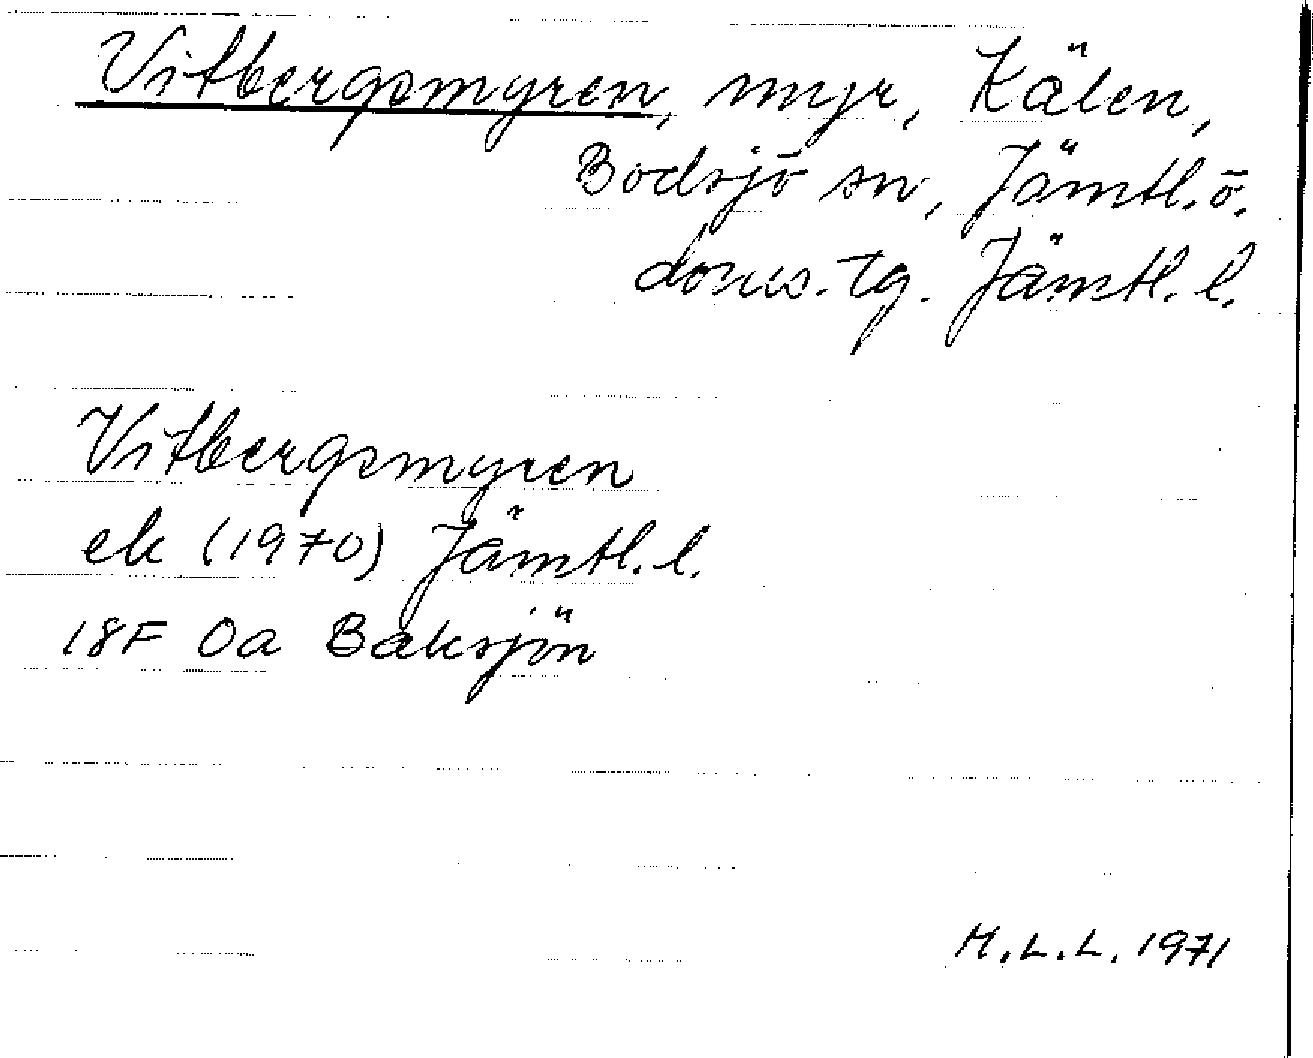 Vitbergsmyren, myr, Kälen,
Bodsjö sn, Jämtl. ö.
doms. tg. Jämtl. l.
Vitbergsmyren
ek (1970) Jämtl. l.
18F 0a Baksjön
M.L.L. 1971